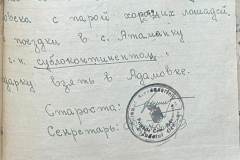 века с парой хороших лошадей
поездки в с. Атаманку
г-н. сублокотинентом,
дарку взять в Адамовке.
Староста:
Секретарь: